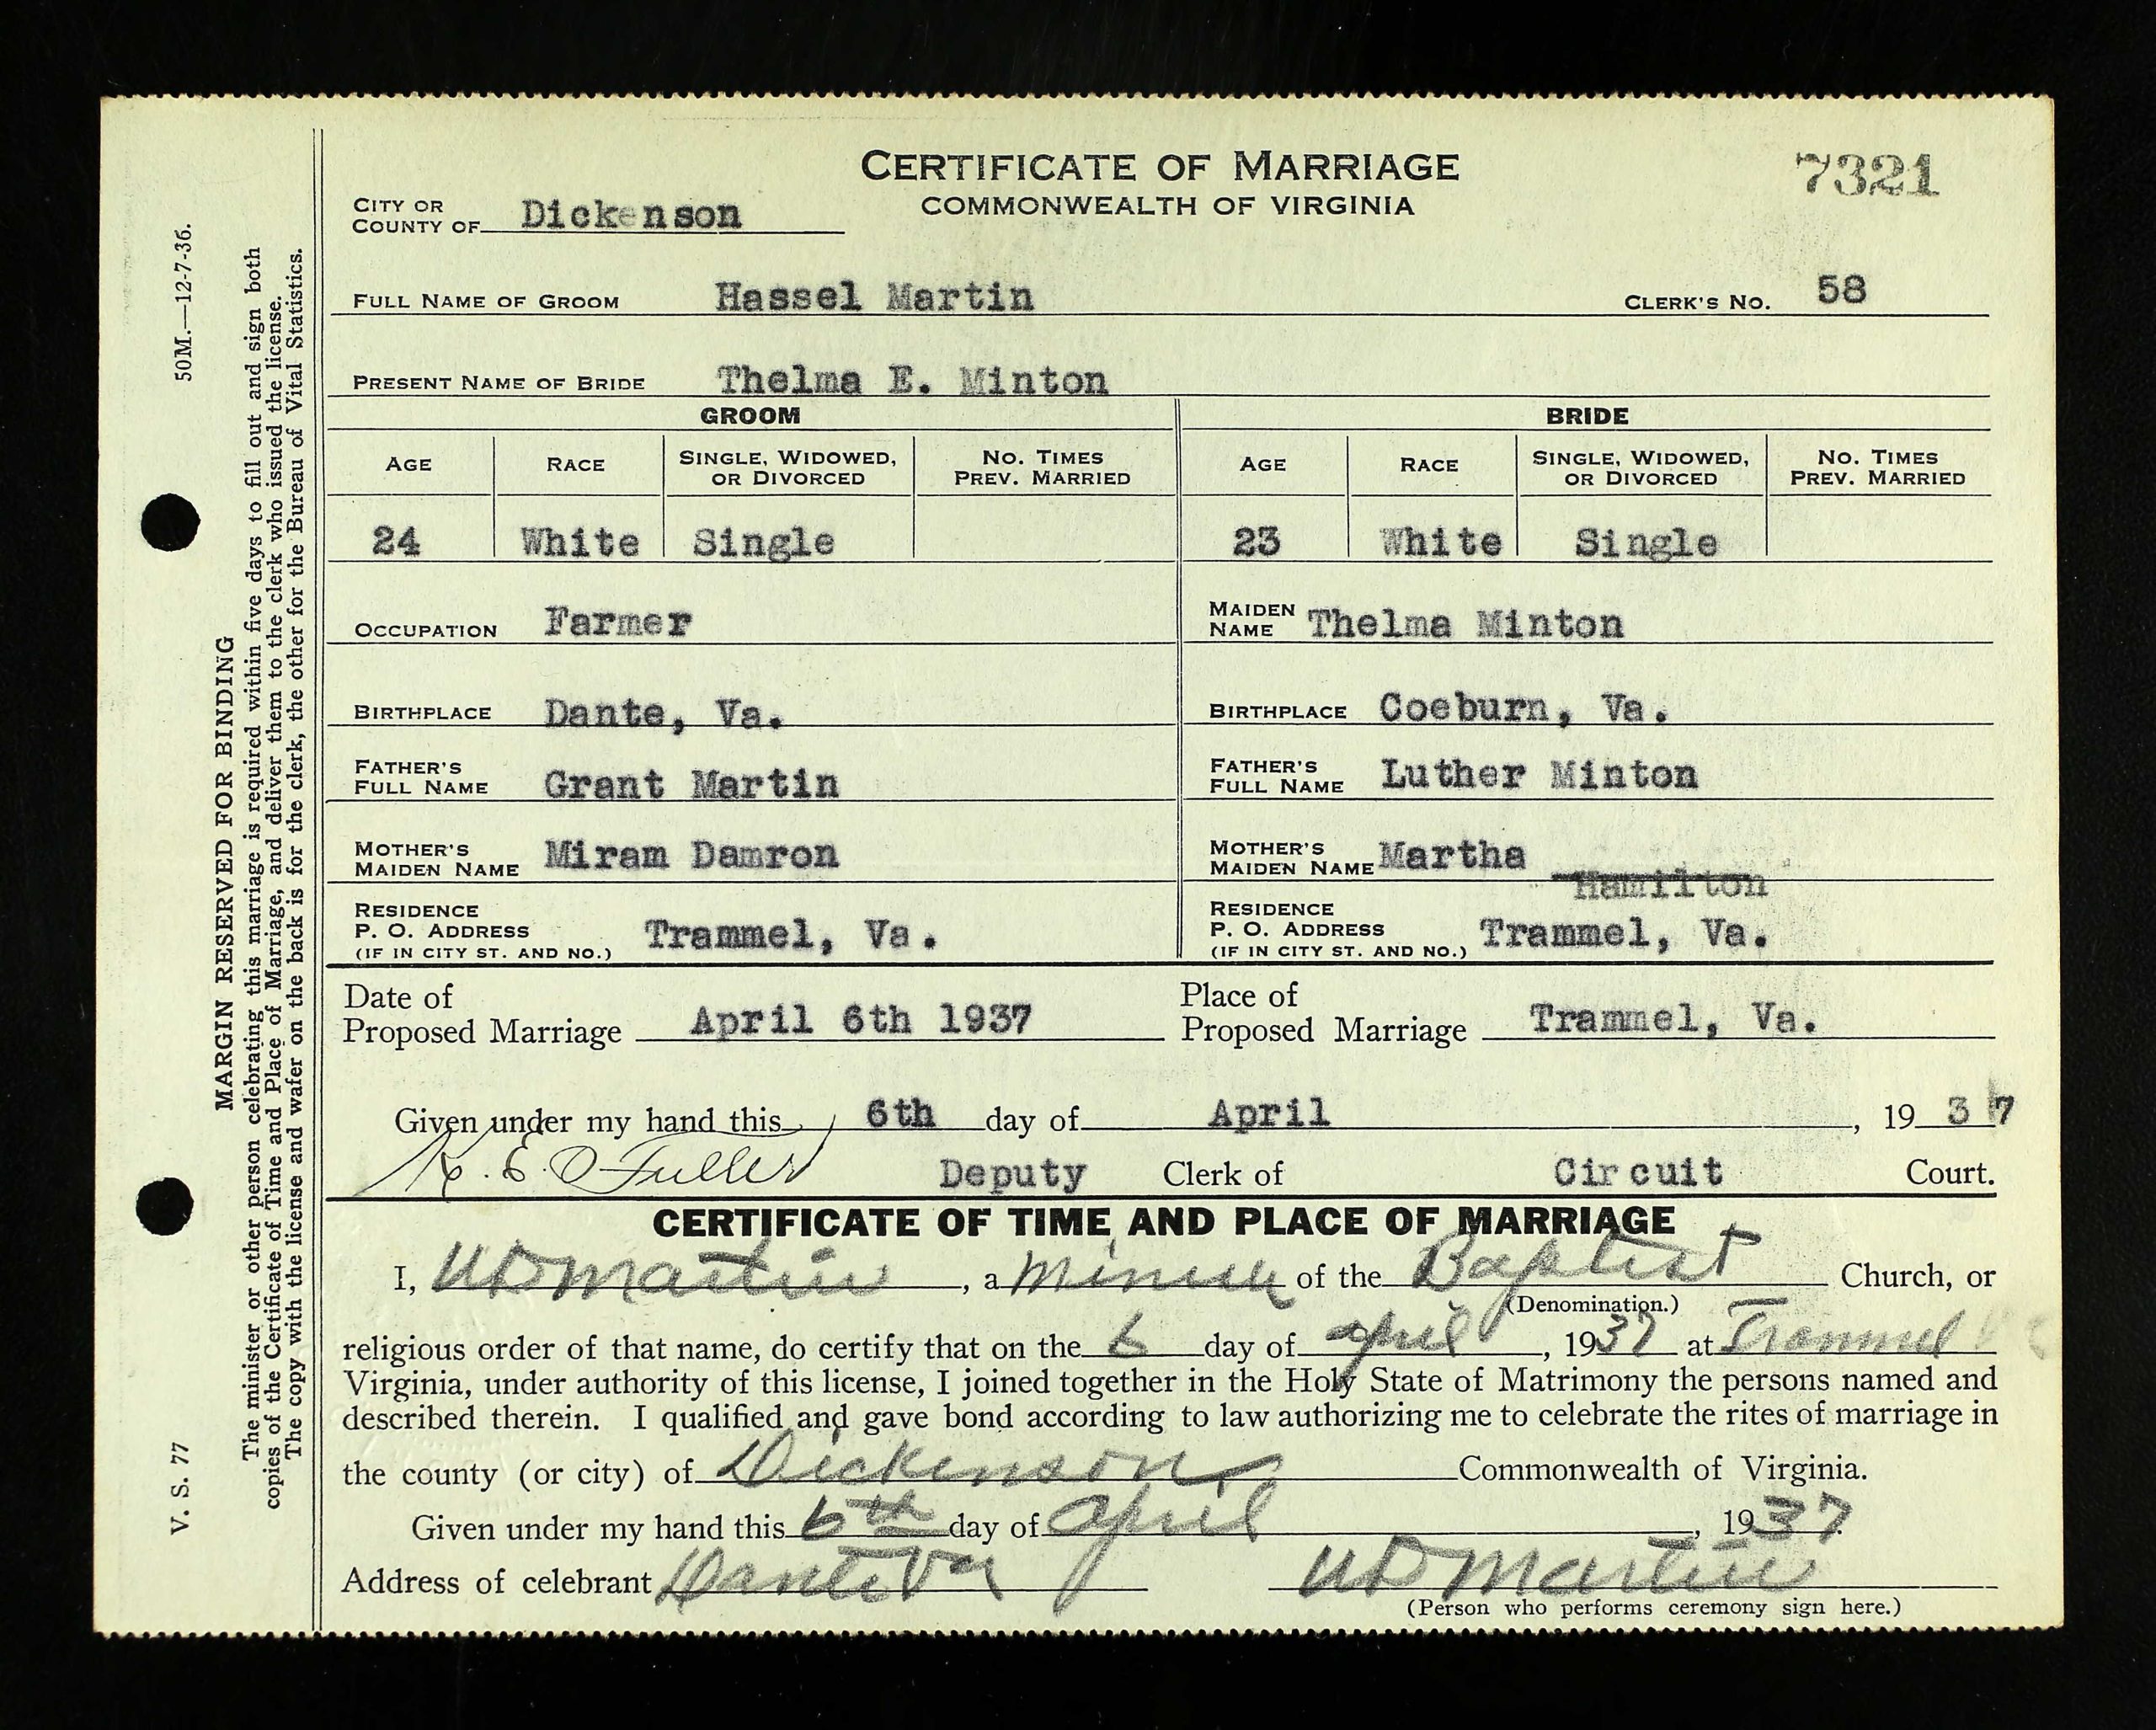 CERTIFICATE OF MARRIAGE
COMMONWEALTH OF VIRGINIA
7321
CITY OR
COUNTY OF Dickenson
FULL NAME OF GROOM Hassel Martin CLERK'S NO. 58
PRESENT NAME OF BRIDE Thelma E. Minton
GROOM BRIDE
AGE RACE SINGLE, WIDOWED, OR DIVORCED NO. TIMES PREV. MARRIED AGE RACE SINGLE, WIDOWED, OR DIVORCED NO. TIMES PREV. MARRIED
24 White Single 23 White Single
OCCUPATION Farmer MAIDEN NAME Thelma Minton
BIRTHPLACE Dante, Va. BIRTHPLACE Coeburn, Va.
FATHER'S FULL NAME Grant Martin FATHER'S FULL NAME Luther Minton
MOTHER'S MAIDEN NAME Miram Damron MOTHER'S MAIDEN NAME Martha Hamilton
RESIDENCE P. O. ADDRESS (IF IN CITY ST. AND NO.) Trammel, Va. RESIDENCE P. O. ADDRESS (IF IN CITY ST. AND NO.) Trammel, Va.
Date of Proposed Marriage April 6th 1937 Place of Proposed Marriage Trammel, Va.
Given under my hand this 6th day of April, 1937
Fuller Deputy Clerk of Circuit Court.
CERTIFICATE OF TIME AND PLACE OF MARRIAGE
I, Martin, a of the Baptist Church, or
(Denomination.)
religious order of that name, do certify that on the 6 day of april, 1937 at Trammel
Virginia, under authority of this license, I joined together in the Holy State of Matrimony the persons named and
described therein. I qualified and gave bond according to law authorizing me to celebrate the rites of marriage in
the county (or city) of Dickenson Commonwealth of Virginia.
Given under my hand this 6th day of april, 1937.
Address of celebrant Dante Va Martin
(Person who performs ceremony sign here.)
50M.—12-7-36.
MARGIN RESERVED FOR BINDING
The minister or other person celebrating this marriage is required within five days to fill out and sign both
copies of the Certificate of Time and Place of Marriage, and deliver them to the clerk who issued the license.
The copy with the license and wafer on the back is for the clerk, the other for the Bureau of Vital Statistics.
V. S. 77